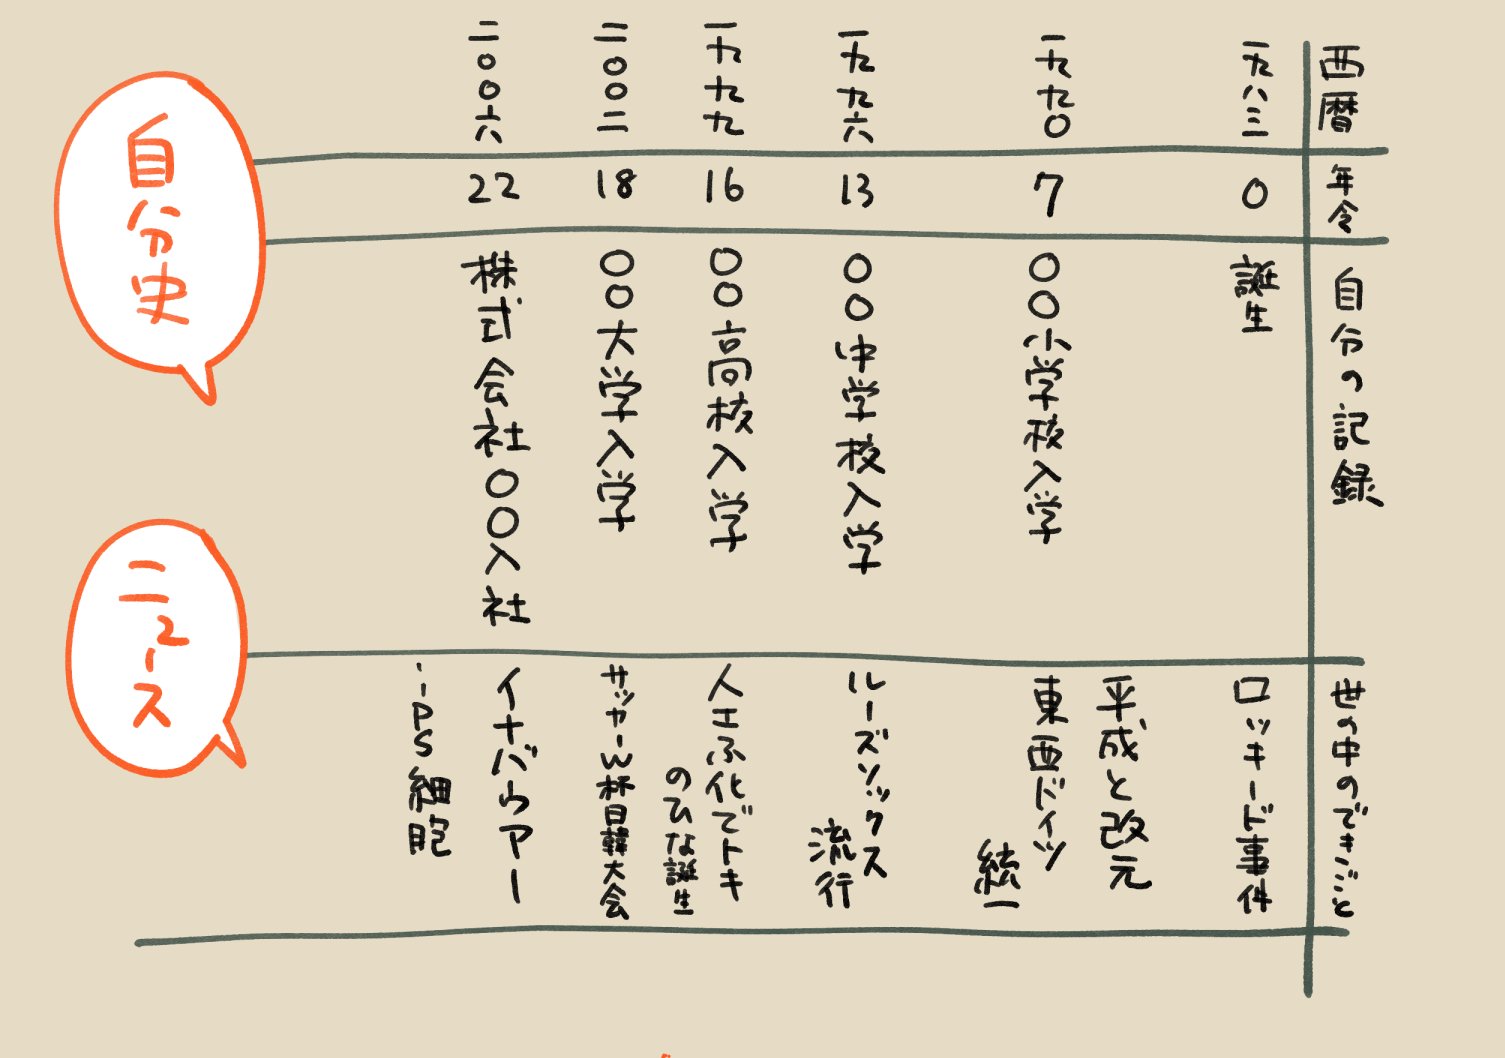 西暦
年令
自分の記録
世の中のできごと
一九八三
0
誕生
ロッキード事件
一九九〇
7
〇〇小学校入学
平成と改元
東西ドイツ
統一
一九九六
13
〇〇中学校入学
ルーズソックス
流行
一九九九
16
〇〇高校入学
人工ふ化でトキ
のひな誕生
二〇〇二
18
〇〇大学入学
サッカーW杯日韓大会
二〇〇六
22
株式会社〇〇入社
イナバウアー
iPS細胞
自分史
ニュース